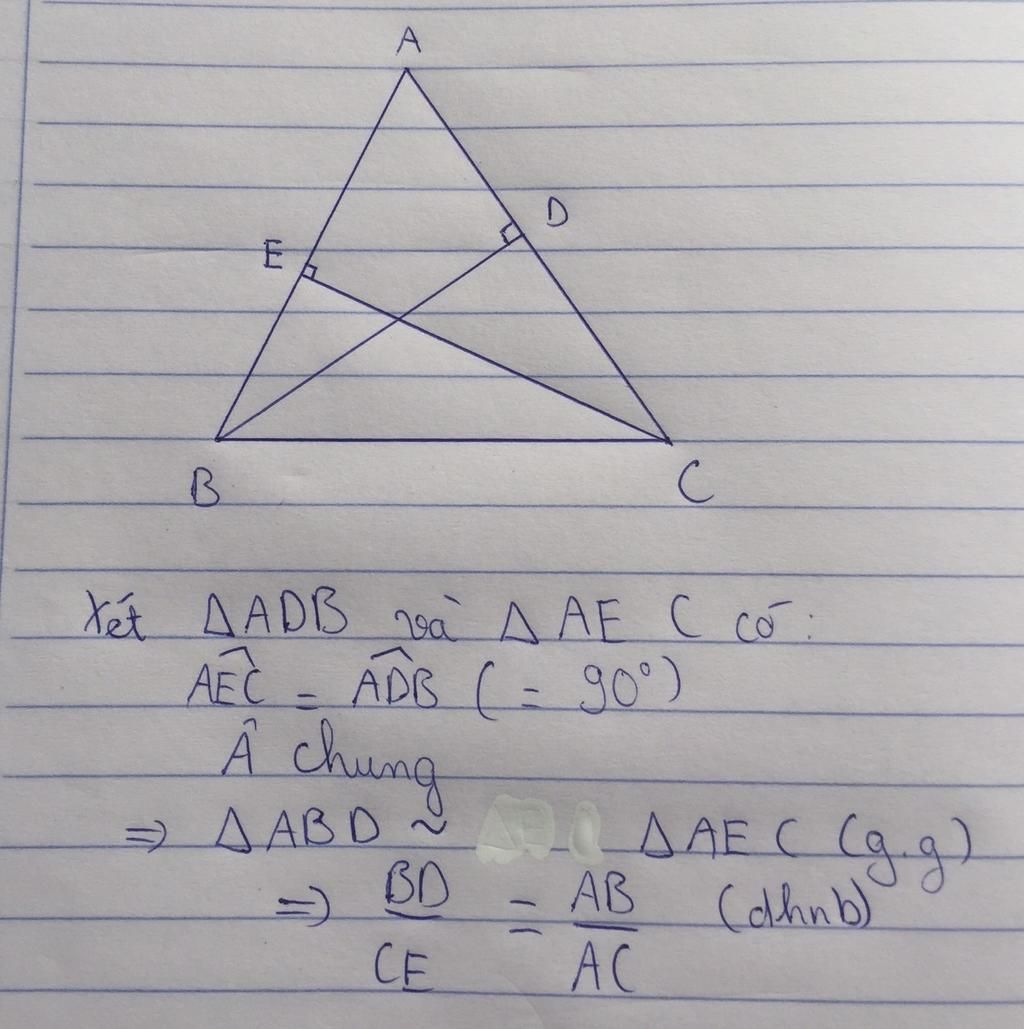 A
D
E
B
C
Xét ΔADB và ΔAEC có:
$\widehat{AEC}$ = $\widehat{ADB}$ (= 90°)
Â chung
=> ΔABD ~ ΔAEC (g.g)
=> $\frac{BD}{CE}$ = $\frac{AB}{AC}$ (dhnb)